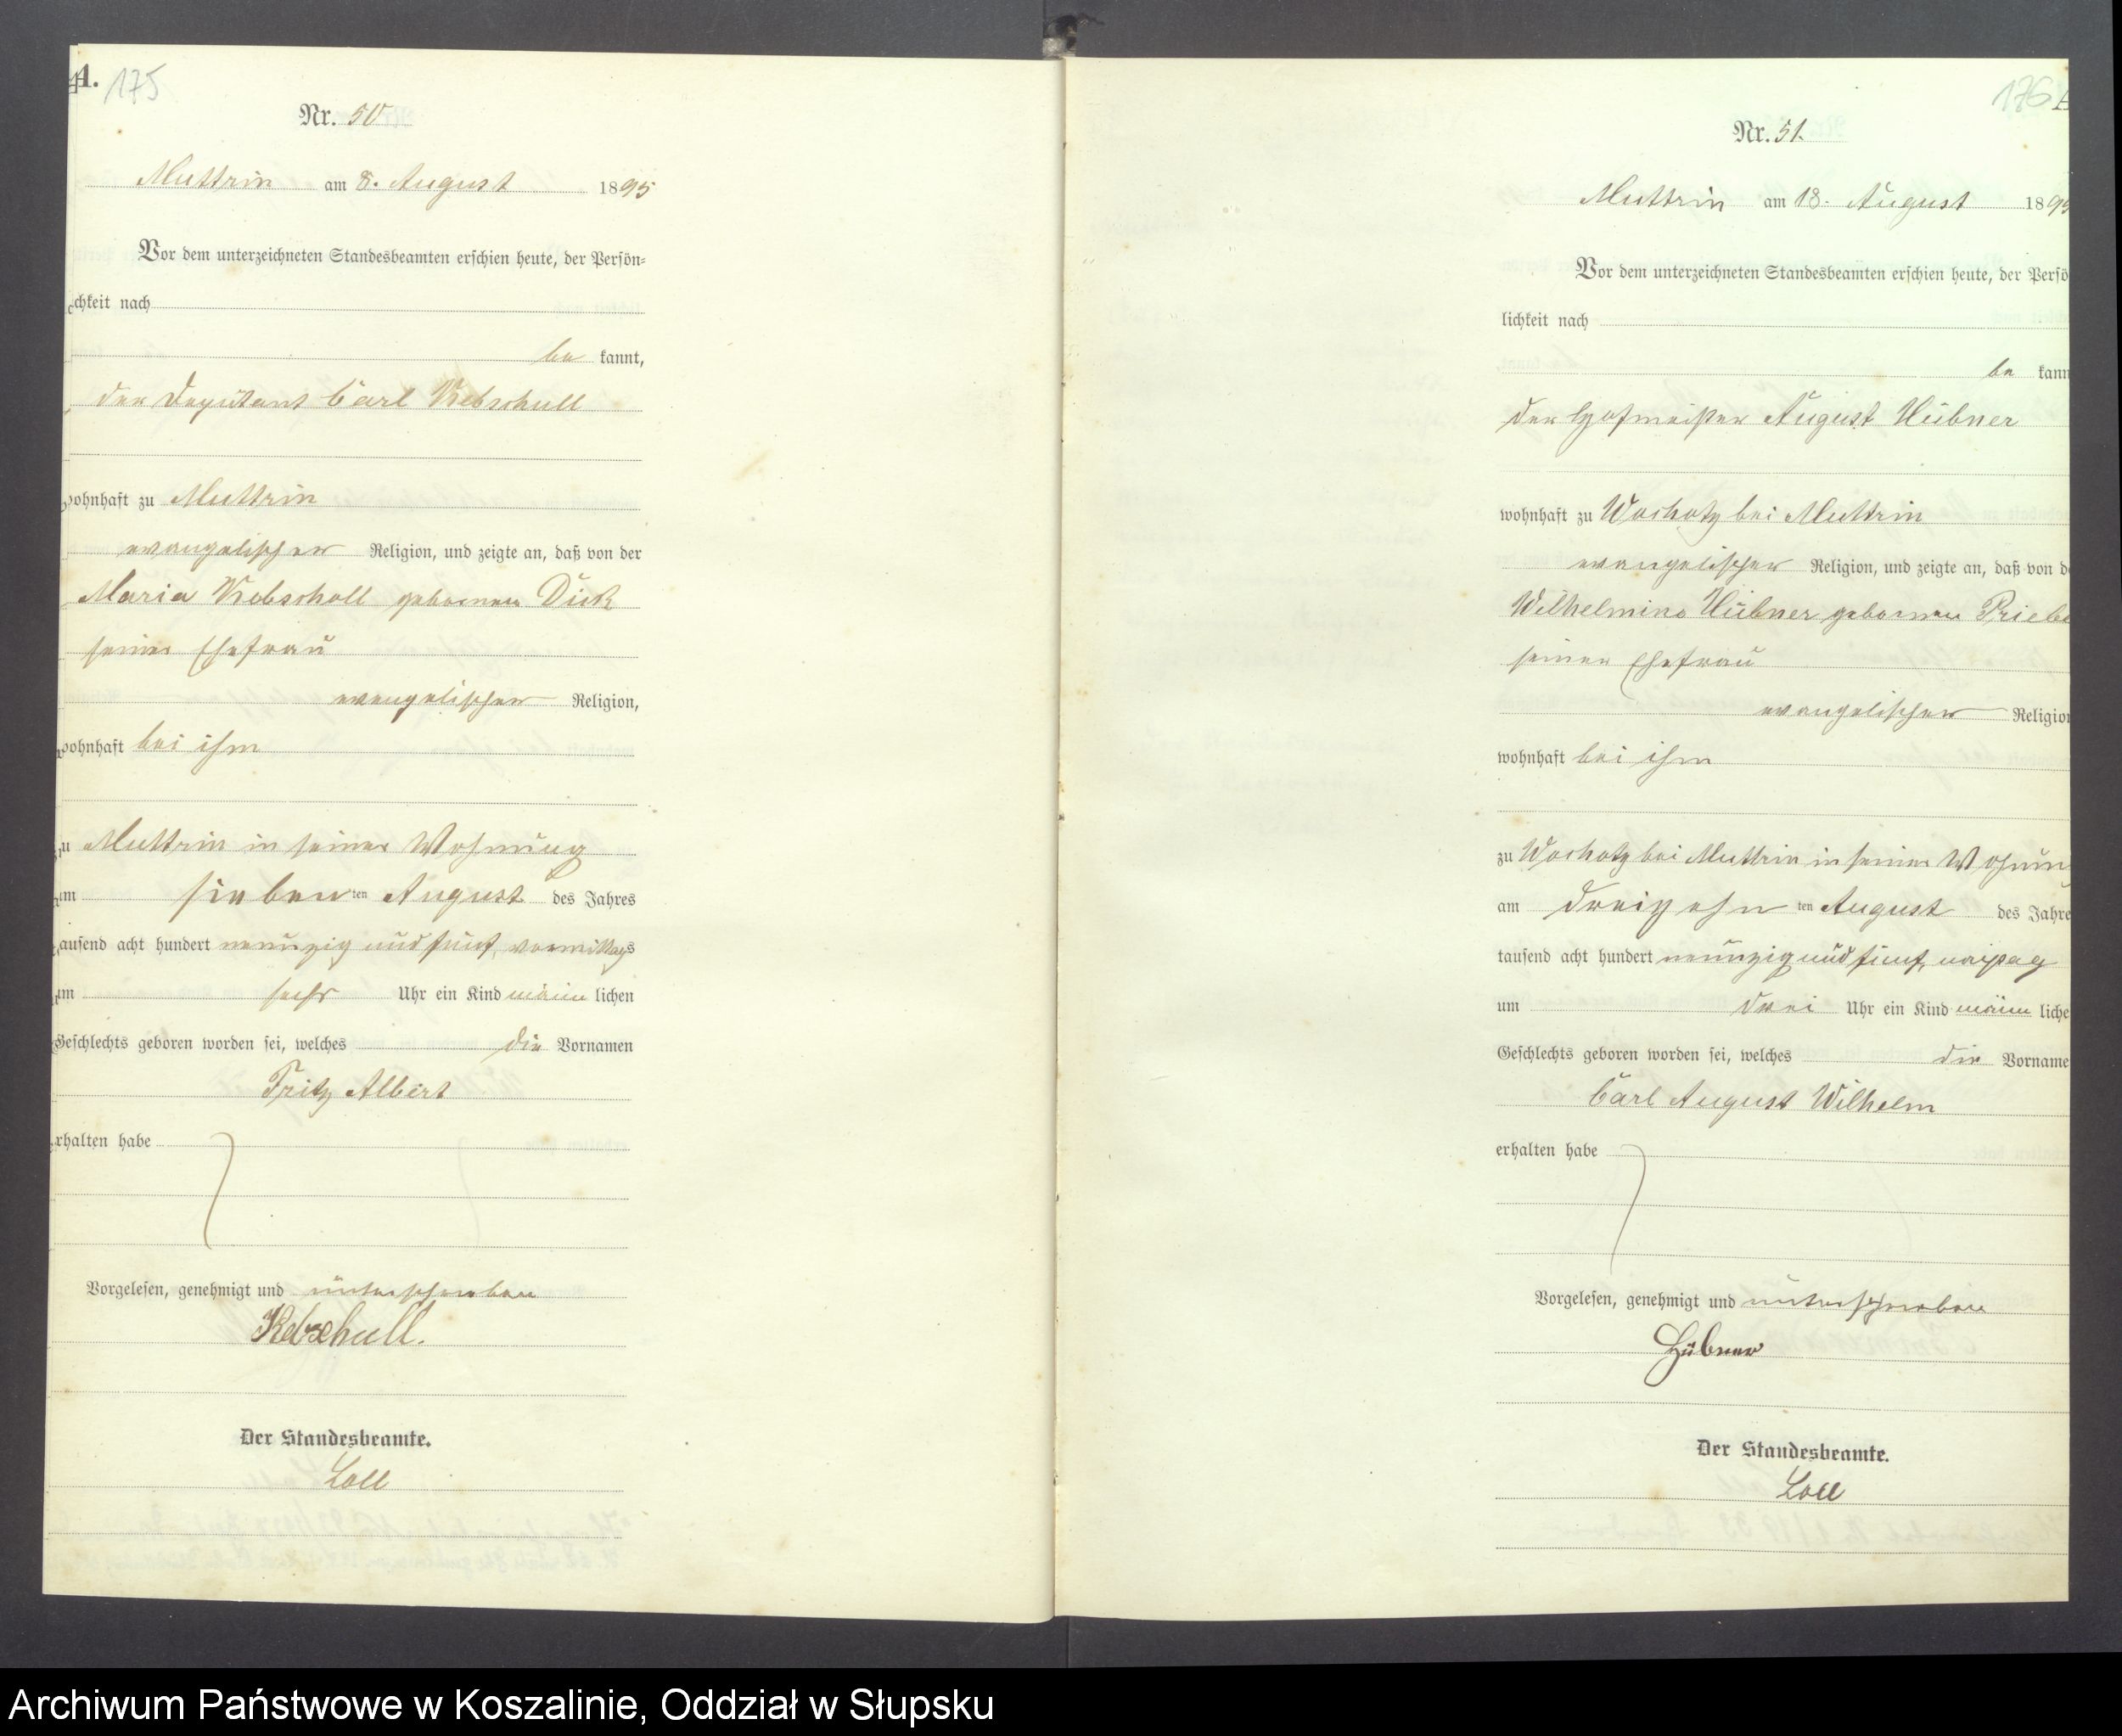 A.
175
Nr. 50
Muttrin am 8. August 1895
Vor dem unterzeichneten Standesbeamten erschien heute, der Persön-
lichkeit nach
be kannt,
der Deputant Carl Kebschull
wohnhaft zu Muttrin
evangelischer Religion, und zeigte an, daß von der
Maria Kebschull geborenen Dick
seiner Ehefrau
evangelischer Religion,
wohnhaft bei ihm
zu Muttrin in seiner Wohnung
am sieben ten August des Jahres
tausend acht hundert neunzig und fünf, vormittags
um sechs Uhr ein Kind männ lichen
Geschlechts geboren worden sei, welches die Vornamen
Fritz Albert
erhalten habe
Vorgelesen, genehmigt und unterschrieben
Kebschull.
Der Standesbeamte.
Loll
176
Nr. 51.
Muttrin am 18. August 189
Vor dem unterzeichneten Standesbeamten erschien heute, der Persö
lichkeit nach
be kann
der Hofmeister August Hübner
wohnhaft zu Wochotz bei Muttrin
evangelischer Religion, und zeigte an, daß von d
Wilhelmine Hübner geborenen Priebe
seiner Ehefrau
evangelischer Religion
wohnhaft bei ihm
zu Wochotz bei Muttrin in seiner Wohnun
am dreizehn ten August des Jahre
tausend acht hundert neunzig und fünf,
um drei Uhr ein Kind männ liche
Geschlechts geboren worden sei, welches die Vorname
Carl August Wilhelm
erhalten habe
Vorgelesen, genehmigt und unterschrieben
Hübner
Der Standesbeamte.
Loll
Archiwum Państwowe w Koszalinie, Oddział w Słupsku